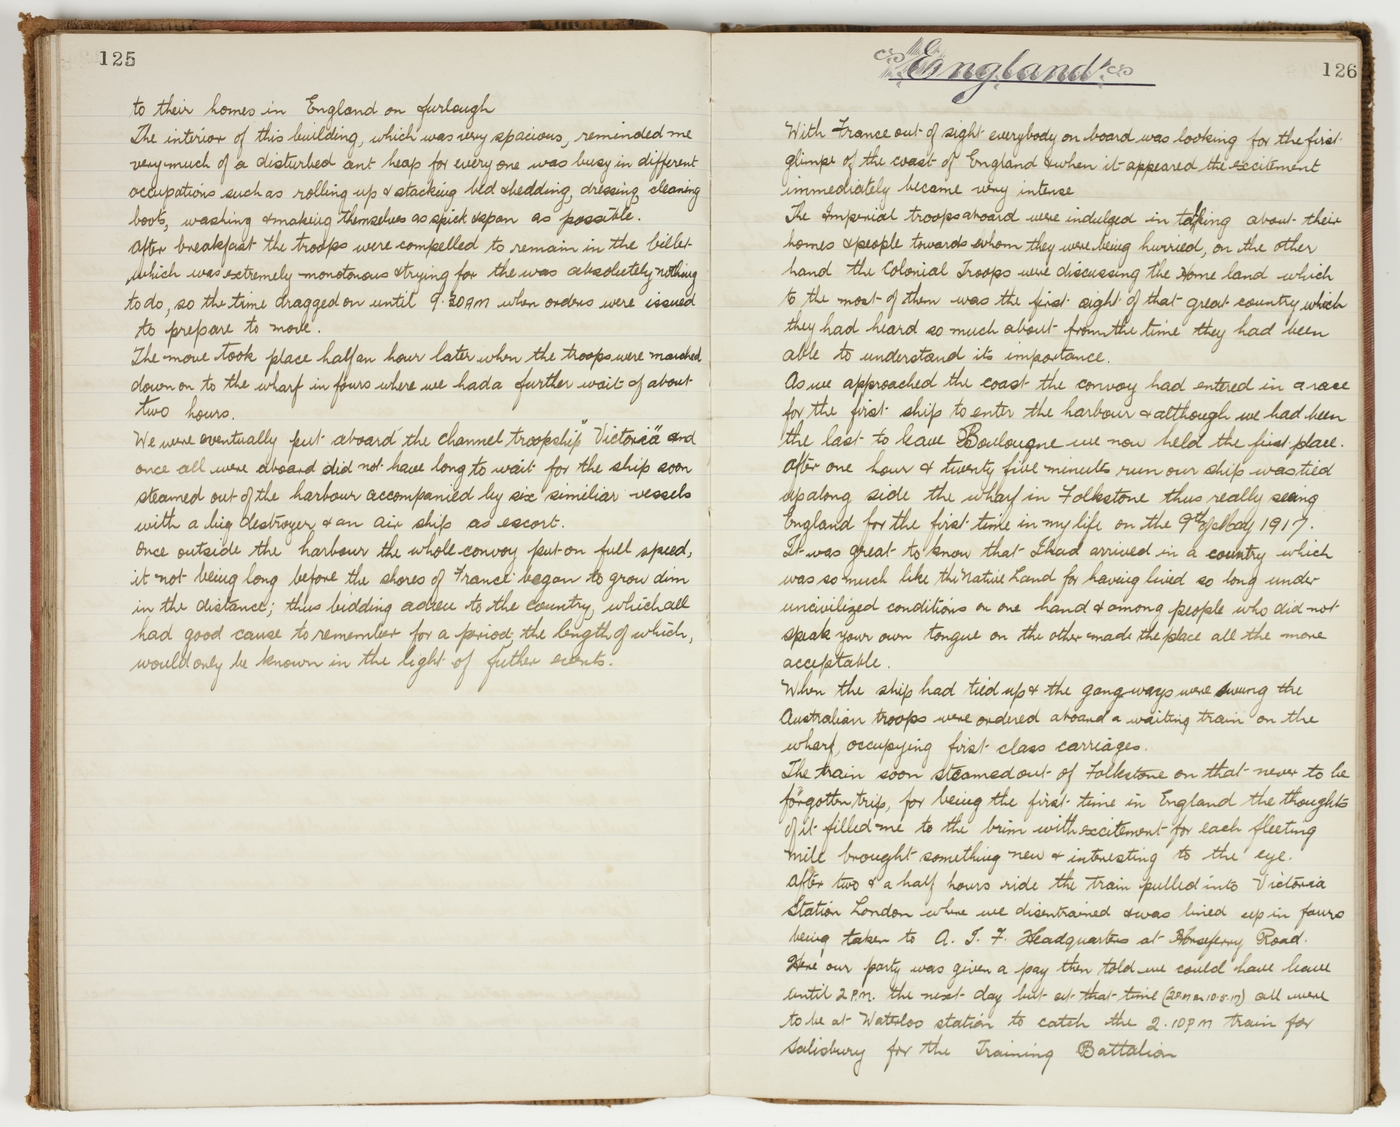 125
to their homes in England on furlough
The interior of this building, which was very spacious, reminded me
very much of a disturbed ant heap for every one was busy in different
occupations such as rolling up & stacking bed & bedding, dressing, cleaning
boots, washing & making themselves as spick & span as possible.
After breakfast the troops were compelled to remain in the billet
which was extremely monotonous & trying for the was absolutely nothing
to do, so the time dragged on until 9.30AM when orders were issued
to prepare to move.
The move took place half an hour later when the troops were marched
down on to the wharf in fours where we had a further wait of about
two hours.
We were eventually put aboard the channel troopship "Victoria" and
once all were aboard did not have long to wait for the ship soon
steamed out of the harbour accompanied by six similiar vessels
with a big destroyer & an air ship as escort.
Once outside the harbour the whole convoy put on full speed,
it not being long before the shores of France began to grow dim
in the distance; thus bidding adieu to the country, which all
had good cause to remember for a period, the length of which,
would only be known in the light of futher events.
England
126
With France out of sight everybody on board was looking for the first
glimpse of the coast of England & when it appeared the excitement
immediately became very intense
The Imperial troops aboard were indulged in talking about their
homes & people towards whom they were being hurried, on the other
hand the Colonial Troops were discussing the Home land which
to the most of them was the first sight of that great country which
they had heard so much about from the time they had been
able to understand its importance.
As we approached the coast the convoy had entered in a race
for the first ship to enter the harbour & although we had been
the last to leave Boulougne we now held the first place.
After one hour & twenty five minutes run our ship was tied
up along side the wharf in Folkstone thus really seeing
England for the first time in my life on the 9th of May 1917.
It was great to know that I had arrived in a country which
was so much like the Native Land for having lived so long under
uncivilized conditions on one hand & among people who did not
speak your own tongue on the other made the place all the more
acceptable.
When the ship had tied up & the gangways were swung the
Australian troops were ordered aboard a waiting train on the
wharf, occupying first class carriages.
The train soon steamed out of Folkstone on that never to be
forgotten trip, for being the first time in England the thoughts
of it filled me to the brim with excitement for each fleeting
mile brought something new & interesting to the eye.
After two & a half hours ride the train pulled into Victoria
Station London where we disentrained & was lined up in fours
being taken to A. I. F. Headquarters at Horseferry Road.
Here our party was given a pay then told we could have leave
until 2 P.M. the next day but at that time (2PM on 10.5.17) all were
to be at Waterloo station to catch the 2.10PM train for
Salisbury for the Training Battalion